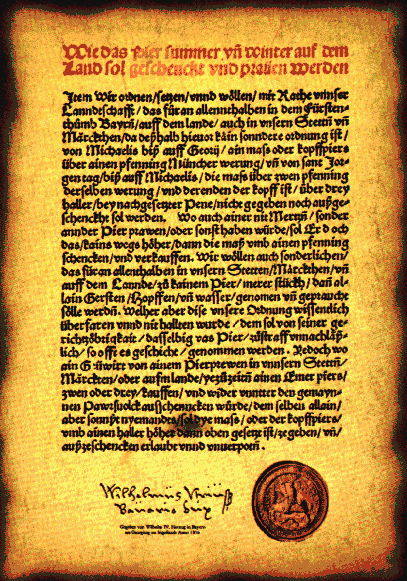 Wie das Pier summer vñ winter auf dem
Land sol geschenckt vnd prauen werden
Jtem Wir ordnen/setzen/vnnd wöllen/mit Rathe vnnser
Lanndtschafft/das für an allennthalben in dem Fürsten-
thůmb Bayrñ/auff dem lande/auch in vnsern Stettñ vñ
Märckthen/da deßhalb hieuor kain sonndere ordnung ist/
von Michaelis biß auff Georij/ain maß oder kopffpiers
über ainen pfenning Müncher werung/vñ von sant Jor-
gen tag/biß auff Michaelis/die maß über zwen pfenning
derselben werung/vnd derenden der kopff ist/über drey
haller/bey nachgesetzter Pene/nicht gegeben noch außge-
schenckht sol werden. Wo auch ainer nit Mertzñ/sonder
annder Pier prawen/oder sonst haben würde/sol Er doch
das/kains wegs höher/dann die maß vmb ainen pfenning
schencken/vnd verkauffen. Wir wöllen auch sonderlichen/
das für an allenthalben in vnsern Stetten/Märckthen/vñ
auff dem Lannde/zů kainem Pier/merer stückh/dañ al-
lain Gersten/Hopffen/vñ wasser/genomen vñ gepraucht
sölle werdñ. Welher aber dise vnsere Ordnung wissendlich
überfaren vnnd nit hallten wurde/dem sol von seiner ge-
richtzöbrigkait/dasselbig vas Pier/zůstraff vnnachläß-
lich/so offt es geschicht/genommen werden. Jedoch wo
ain Gůwirt von ainem Pierprewen in vnnsern Stettñ/
Märckten/oder aufm lande/yezůzeitñ ainen Emer piers/
zwen oder drey/kauffen/vnd wider vnnter den gemayn-
nen Pawrsuolck ausschenncken würde/dem selben allain/
aber sonnst nyemandts/sol dye maß/oder der kopffpiers/
vmb ainen haller höher dann oben gesetzt ist/ze geben/vñ/
außzeschencken erlaubt vnnd vnuerpotñ.
Gegeben von Wilhelm IV. Herzog in Bayern
am Georgitag zu Ingolstadt Anno 1516